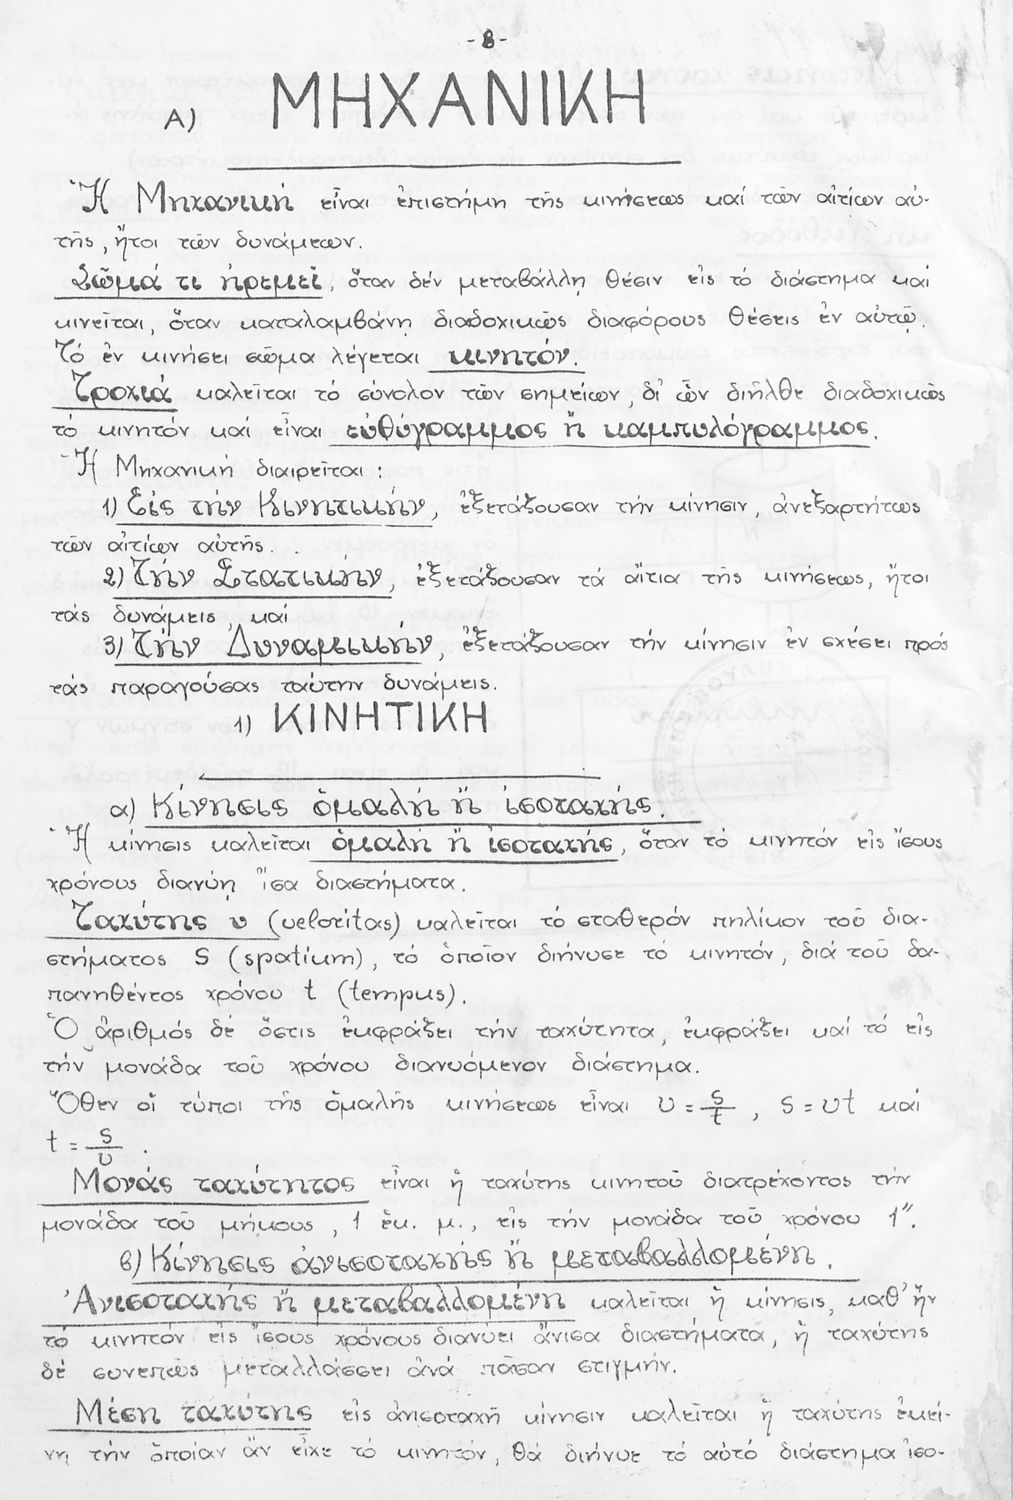 - 8 -
Α) ΜΗΧΑΝΙΚΗ
Ἡ Μηχανική εἶναι ἐπιστήμη τῆς κινήσεως καί τῶν αἰτίων αὐ-
τῆς, ἤτοι τῶν δυνάμεων.
Σῶμά τι ἠρεμεῖ, ὅταν δέν μεταβάλλη θέσιν εἰς τό διάστημα καί
κινεῖται, ὅταν καταλαμβάνη διαδοχικῶς διαφόρους θέσεις ἐν αὐτῷ.
Τό ἐν κινήσει σῶμα λέγεται κινητόν.
Τροχιά καλεῖται τό σύνολον τῶν σημείων, δι' ὧν διῆλθε διαδοχικῶς
τό κινητόν καί εἶναι εὐθύγραμμος ἤ καμπυλόγραμμος.
Ἡ Μηχανική διαιρεῖται:
1) Εἰς τήν Κινητικήν, ἐξετάζουσαν τήν κίνησιν, ἀνεξαρτήτως
τῶν αἰτίων αὐτῆς.
2) Τήν Στατικήν, ἐξετάζουσαν τά αἴτια τῆς κινήσεως, ἤτοι
τάς δυνάμεις καί
3) Τήν Δυναμικήν, ἐξετάζουσαν τήν κίνησιν ἐν σχέσει πρός
τάς παραγούσας ταύτην δυνάμεις.
1) ΚΙΝΗΤΙΚΗ
α) Κίνησις ὁμαλή ἤ ἰσοταχής.
Ἡ κίνησις καλεῖται ὁμαλή ἤ ἰσοταχής, ὅταν τό κινητόν εἰς ἴσους
χρόνους διανύη ἴσα διαστήματα.
Ταχύτης υ (velocitas) καλεῖται τό σταθερόν πηλίκον τοῦ δια-
στήματος S (spatium), τό ὁποῖον διήνυσε τό κινητόν, διά τοῦ δα-
πανηθέντος χρόνου t (tempus).
Ὁ ἀριθμός δέ ὅστις ἐκφράζει τήν ταχύτητα, ἐκφράζει καί τό εἰς
τήν μονάδα τοῦ χρόνου διανυόμενον διάστημα.
Ὅθεν οἱ τύποι τῆς ὁμαλῆς κινήσεως εἶναι υ = s/t , s = υt καί
t = s/υ .
Μονάς ταχύτητος εἶναι ἡ ταχύτης κινητοῦ διατρέχοντος τήν
μονάδα τοῦ μήκους, 1 ἑκ. μ., εἰς τήν μονάδα τοῦ χρόνου 1".
β) Κίνησις ἀνισοταχής ἤ μεταβαλλομένη.
Ἀνισοταχής ἤ μεταβαλλομένη καλεῖται ἡ κίνησις, καθ' ἥν
τό κινητόν εἰς ἴσους χρόνους διανύει ἄνισα διαστήματα, ἡ ταχύτης
δέ συνεπῶς μεταλλάσσει ἀνά πᾶσαν στιγμήν.
Μέση ταχύτης εἰς ἀνισοταχῆ κίνησιν καλεῖται ἡ ταχύτης ἐκεί-
νη τήν ὁποίαν ἄν εἶχε τό κινητόν, θά διήνυε τό αὐτό διάστημα ἰσο-